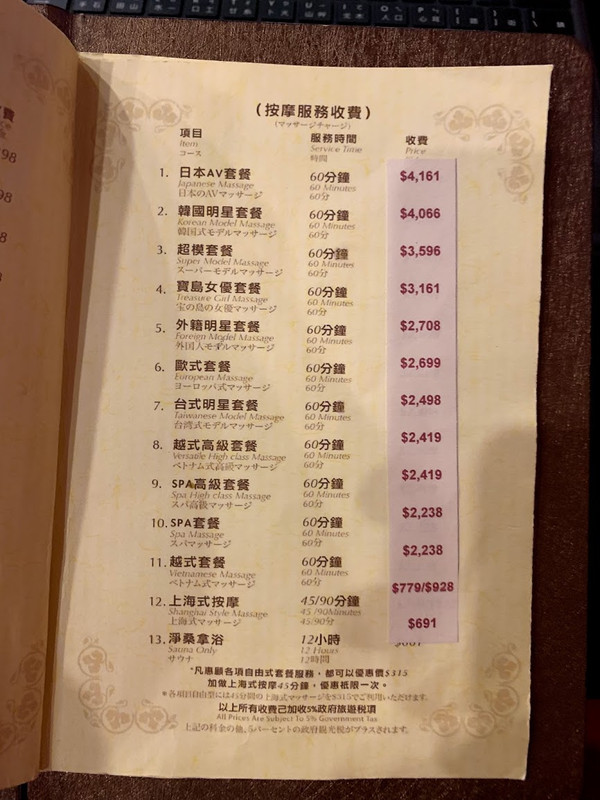 (按摩服務收費)
(マッサージチャージ)
項目 服務時間 收費
Item Service Time Price
コース 時間
1. 日本AV套餐 60分鐘 $4,161
Japanese Massage 60 Minutes
日本のAVマッサージ 60分
2. 韓國明星套餐 60分鐘 $4,066
Korean Model Massage 60 Minutes
韓国式モデルマッサージ 60分
3. 超模套餐 60分鐘 $3,596
Super Model Massage 60 Minutes
スーパーモデルマッサージ 60分
4. 寶島女優套餐 60分鐘 $3,161
Treasure Girl Massage 60 Minutes
宝の島の女優マッサージ 60分
5. 外籍明星套餐 60分鐘 $2,708
Foreign Model Massage 60 Minutes
外国人モデルマッサージ 60分
6. 歐式套餐 60分鐘 $2,699
European Massage 60 Minutes
ヨーロッパ式マッサージ 60分
7. 台式明星套餐 60分鐘 $2,498
Taiwanese Model Massage 60 Minutes
台湾式モデルマッサージ 60分
8. 越式高級套餐 60分鐘 $2,419
Versatile High class Massage 60 Minutes
ベトナム式高級マッサージ 60分
9. SPA高級套餐 60分鐘 $2,419
Spa High class Massage 60 Minutes
スパ高級マッサージ 60分
10. SPA套餐 60分鐘 $2,238
Spa Massage 60 Minutes
スパマッサージ 60分
11. 越式套餐 60分鐘 $2,238
Vietnamese Massage 60 Minutes
ベトナム式マッサージ 60分
12. 上海式按摩 45/90分鐘 $779/$928
Shanghai Style Massage 45 /90Minutes
上海式マッサージ 45/90分
13. 淨桑拿浴 12小時 $691
Sauna Only 12 Hours
サウナ 12時間
*凡惠顧各項自由式套餐服務，都可以優惠價$315
加做上海式按摩45分鐘，優惠祗限一次。
*各項目自由型には45分間の上海式マッサージを$315でご利用いただけます。
以上所有收費己加收5%政府旅遊稅項
All Prices Are Subject To 5% Government Tax
上記の料金の他、5パーセントの政府観光税がプラスされます。